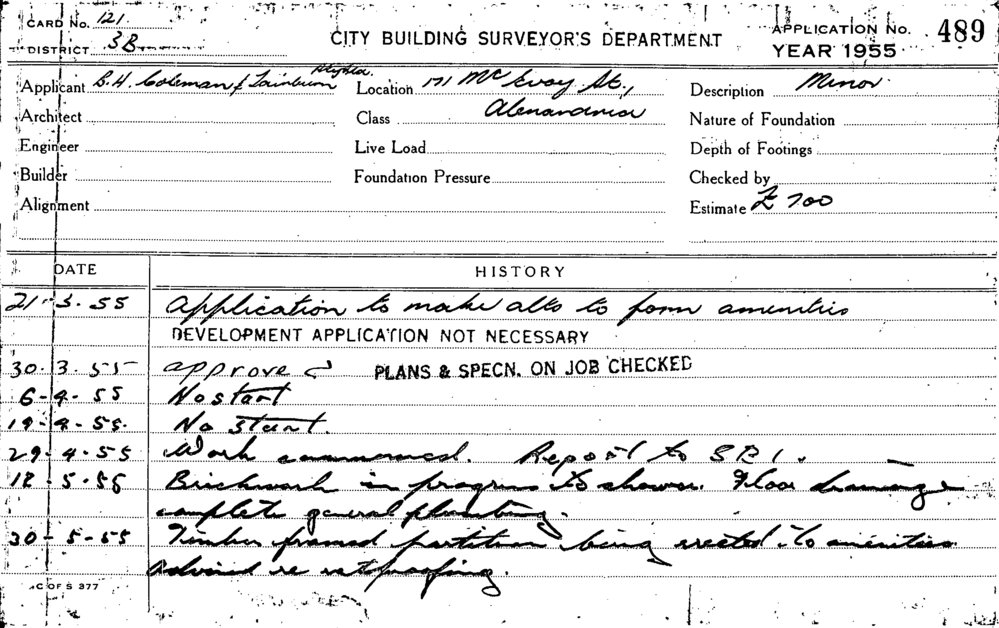 CARD No. 121.
DISTRICT 3B
CITY BUILDING SURVEYOR'S DEPARTMENT
APPLICATION No. 489
YEAR 1955
Applicant B.H. Coleman &
Location 171 McEvoy St.,
Description Minor
Architect
Class Alexandria
Nature of Foundation
Engineer
Live Load
Depth of Footings
Builder
Foundation Pressure
Checked by
Alignment
Estimate £ 700
DATE HISTORY
21-3-55 Application to make alts to form amenities
DEVELOPMENT APPLICATION NOT NECESSARY
30.3.55 approved PLANS & SPECN. ON JOB CHECKED
6-4-55 No start
19-4-55. No start.
29-4-55 Work commenced. Report to S.B.I.
18-5-55 Brickwork in progress to shower. Floor drainage
complete general plumbing.
30-5-55 Timber framed partition being erected to amenities
Advised re ratproofing.
C OF S 377